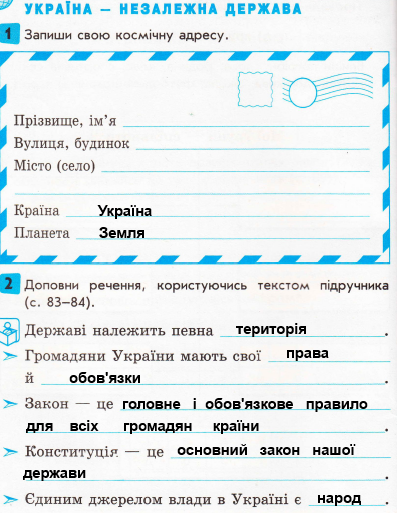 УКРАЇНА – НЕЗАЛЕЖНА ДЕРЖАВА
1 Запиши свою космічну адресу.
Прізвище, ім'я
Вулиця, будинок
Місто (село)
Країна Україна
Планета Земля
2 Доповни речення, користуючись текстом підручника
(с. 83–84).
Державі належить певна територія .
Громадяни України мають свої права
й обов'язки .
Закон — це головне і обов'язкове правило
для всіх громадян країни .
Конституція — це основний закон нашої
держави .
Єдиним джерелом влади в Україні є народ .